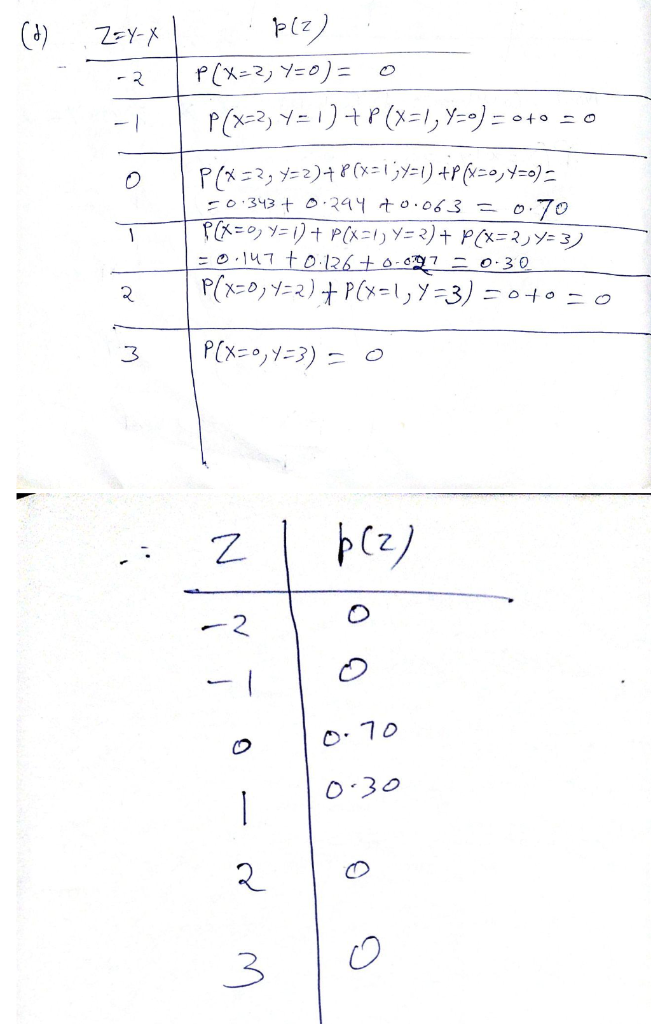 (d) Z=Y-X p(z)
-2 P(X=2, Y=0) = 0
-1 P(X=2, Y=1) + P(X=1, Y=0) = 0+0 = 0
0 P(X=2, Y=2) + P(X=1, Y=1) + P(X=0, Y=0) =
= 0.343 + 0.294 + 0.063 = 0.70
1 P(X=0, Y=1) + P(X=1, Y=2) + P(X=2, Y=3)
= 0.147 + 0.126 + = 0.30
2 P(X=0, Y=2) + P(X=1, Y=3) = 0+0 = 0
3 P(X=0, Y=3) = 0
∴ Z p(z)
-2 0
-1 0
0 0.70
1 0.30
2 0
3 0